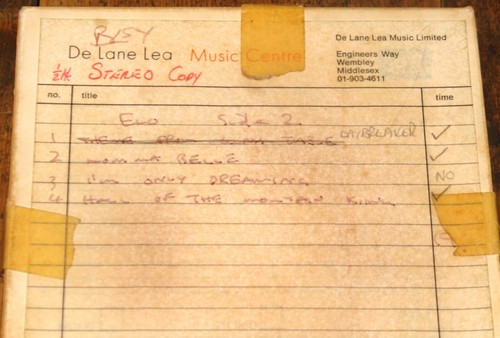 De Lane Lea Music Centre
De Lane Lea Music Limited
Engineers Way
Wembley
Middlesex
01-903-4611
STEREO COPY
no. title time
ELO Side 2.
1 THEME FROM DAYBREAKER ✓
2 MOMMA BELLE ✓
3 I'm ONLY DREAMING NO
4 HALL OF THE MOUNTAIN KING ✓